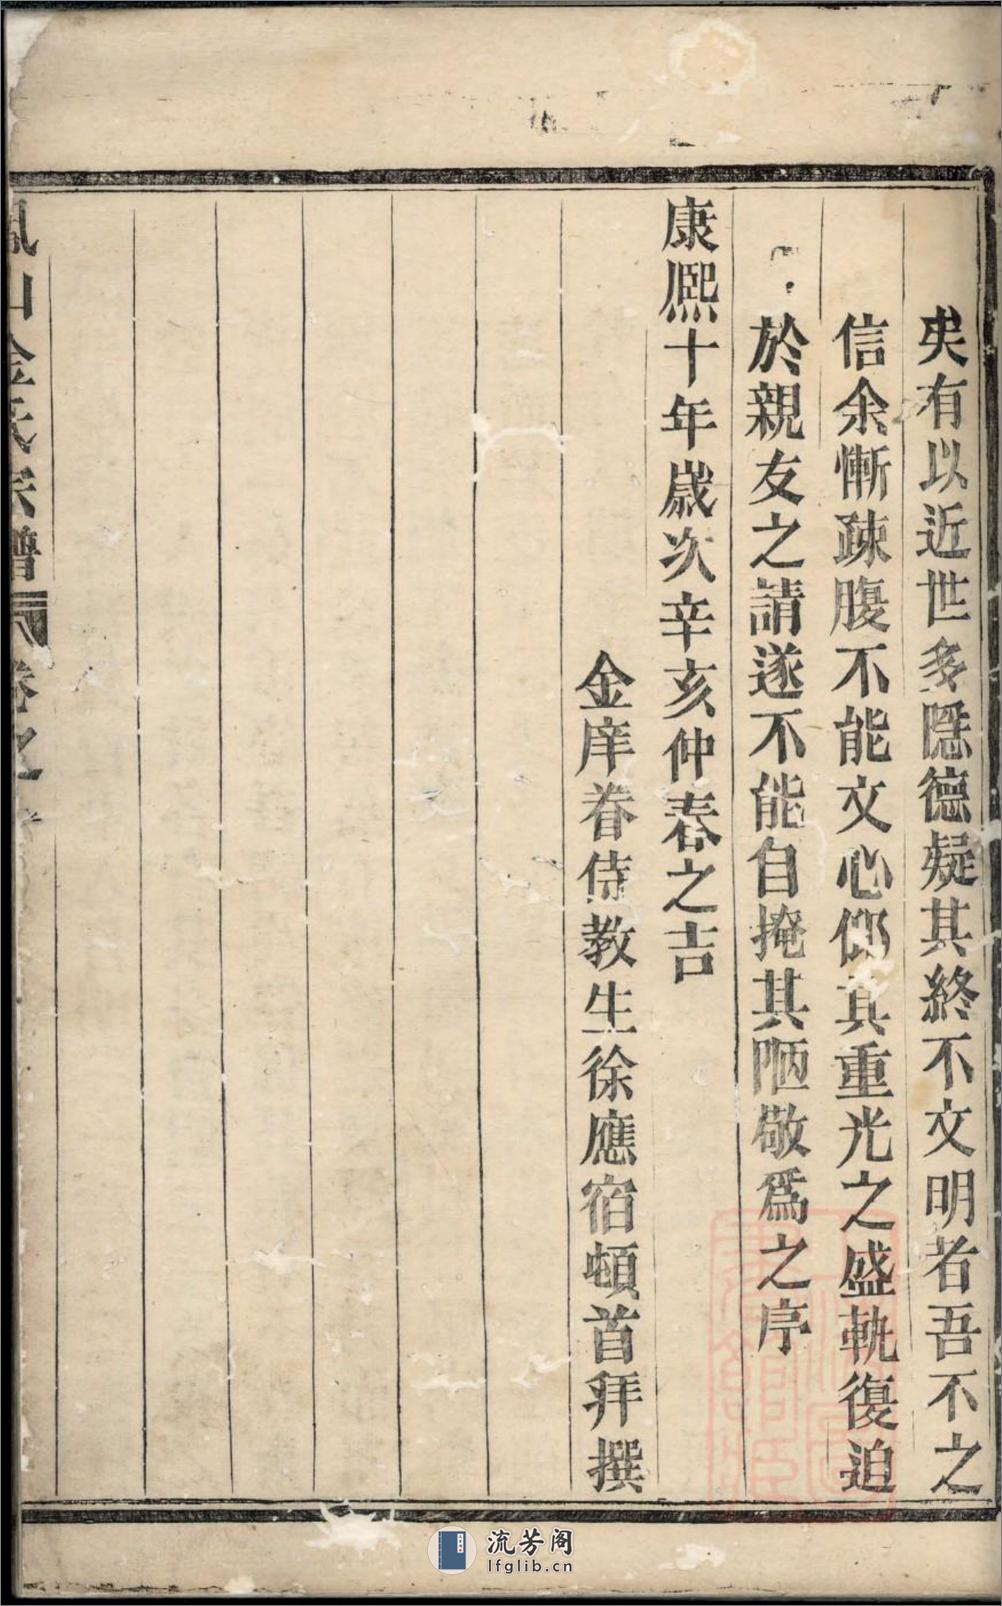 矣有以近世多隱德疑其終不文明者吾不之
信余慚疎腹不能文心仰其重光之盛軌復迫
於親友之請遂不能自掩其陋敬爲之序
康熙十年歲次辛亥仲春之吉
金庠眷侍教生徐應宿頓首拜撰
鳳山金氏宗譜 卷之
流芳阁
lfglib.cn